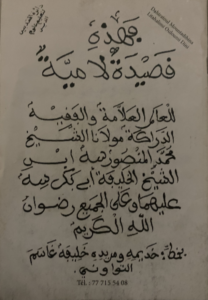 فهذه
قصيدة لامية
للعالم العلامة والبقية
الدراكة مولانا الشيخ
محمد المنصور سه ابن
الشيخ الخليفة ابي بكر سه
عليهما وعلى الجميع رضوان
الله الكريم
بخط: خديمه ومريده خليفة غانم
التواوني
Tél : 77 715 54 08